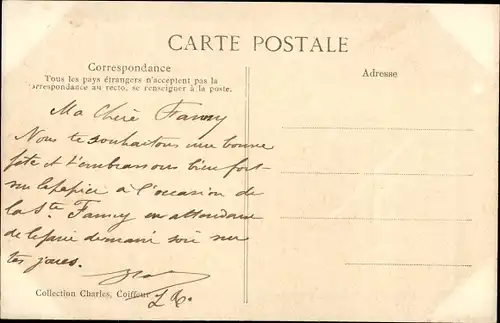 CARTE POSTALE
Correspondance
Tous les pays étrangers n'acceptent pas la
correspondance au recto, se renseigner à la poste.
Adresse
Ma Chère Fanny
Nous te souhaitons une bonne
fête et t'embrassons bien fort
sur le papier à l'occasion de
la Ste Fanny en attendant
de le faire demain soir sur
tes joues.
Collection Charles, Coiffeur